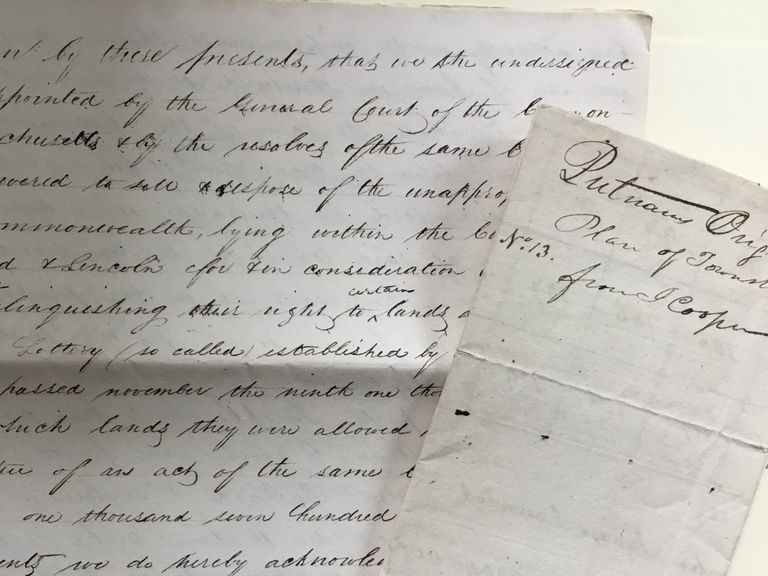 by these presents, that we the undersigned
ppointed by the General Court of the
chusetts & by the resolves of the same
wered to sell & dispose of the unappro
mmonwealth, lying within the Co
d & Lincoln for & in consideration
linquishing their right to certain lands
Lottery (so called) established by
passed november the ninth one tho
which lands they were allowed
tue of an act of the same
one thousand seven hundred
ents we do hereby acknowled
Putnams Orig
Plan of Townsh
No. 13.
from J Cooper